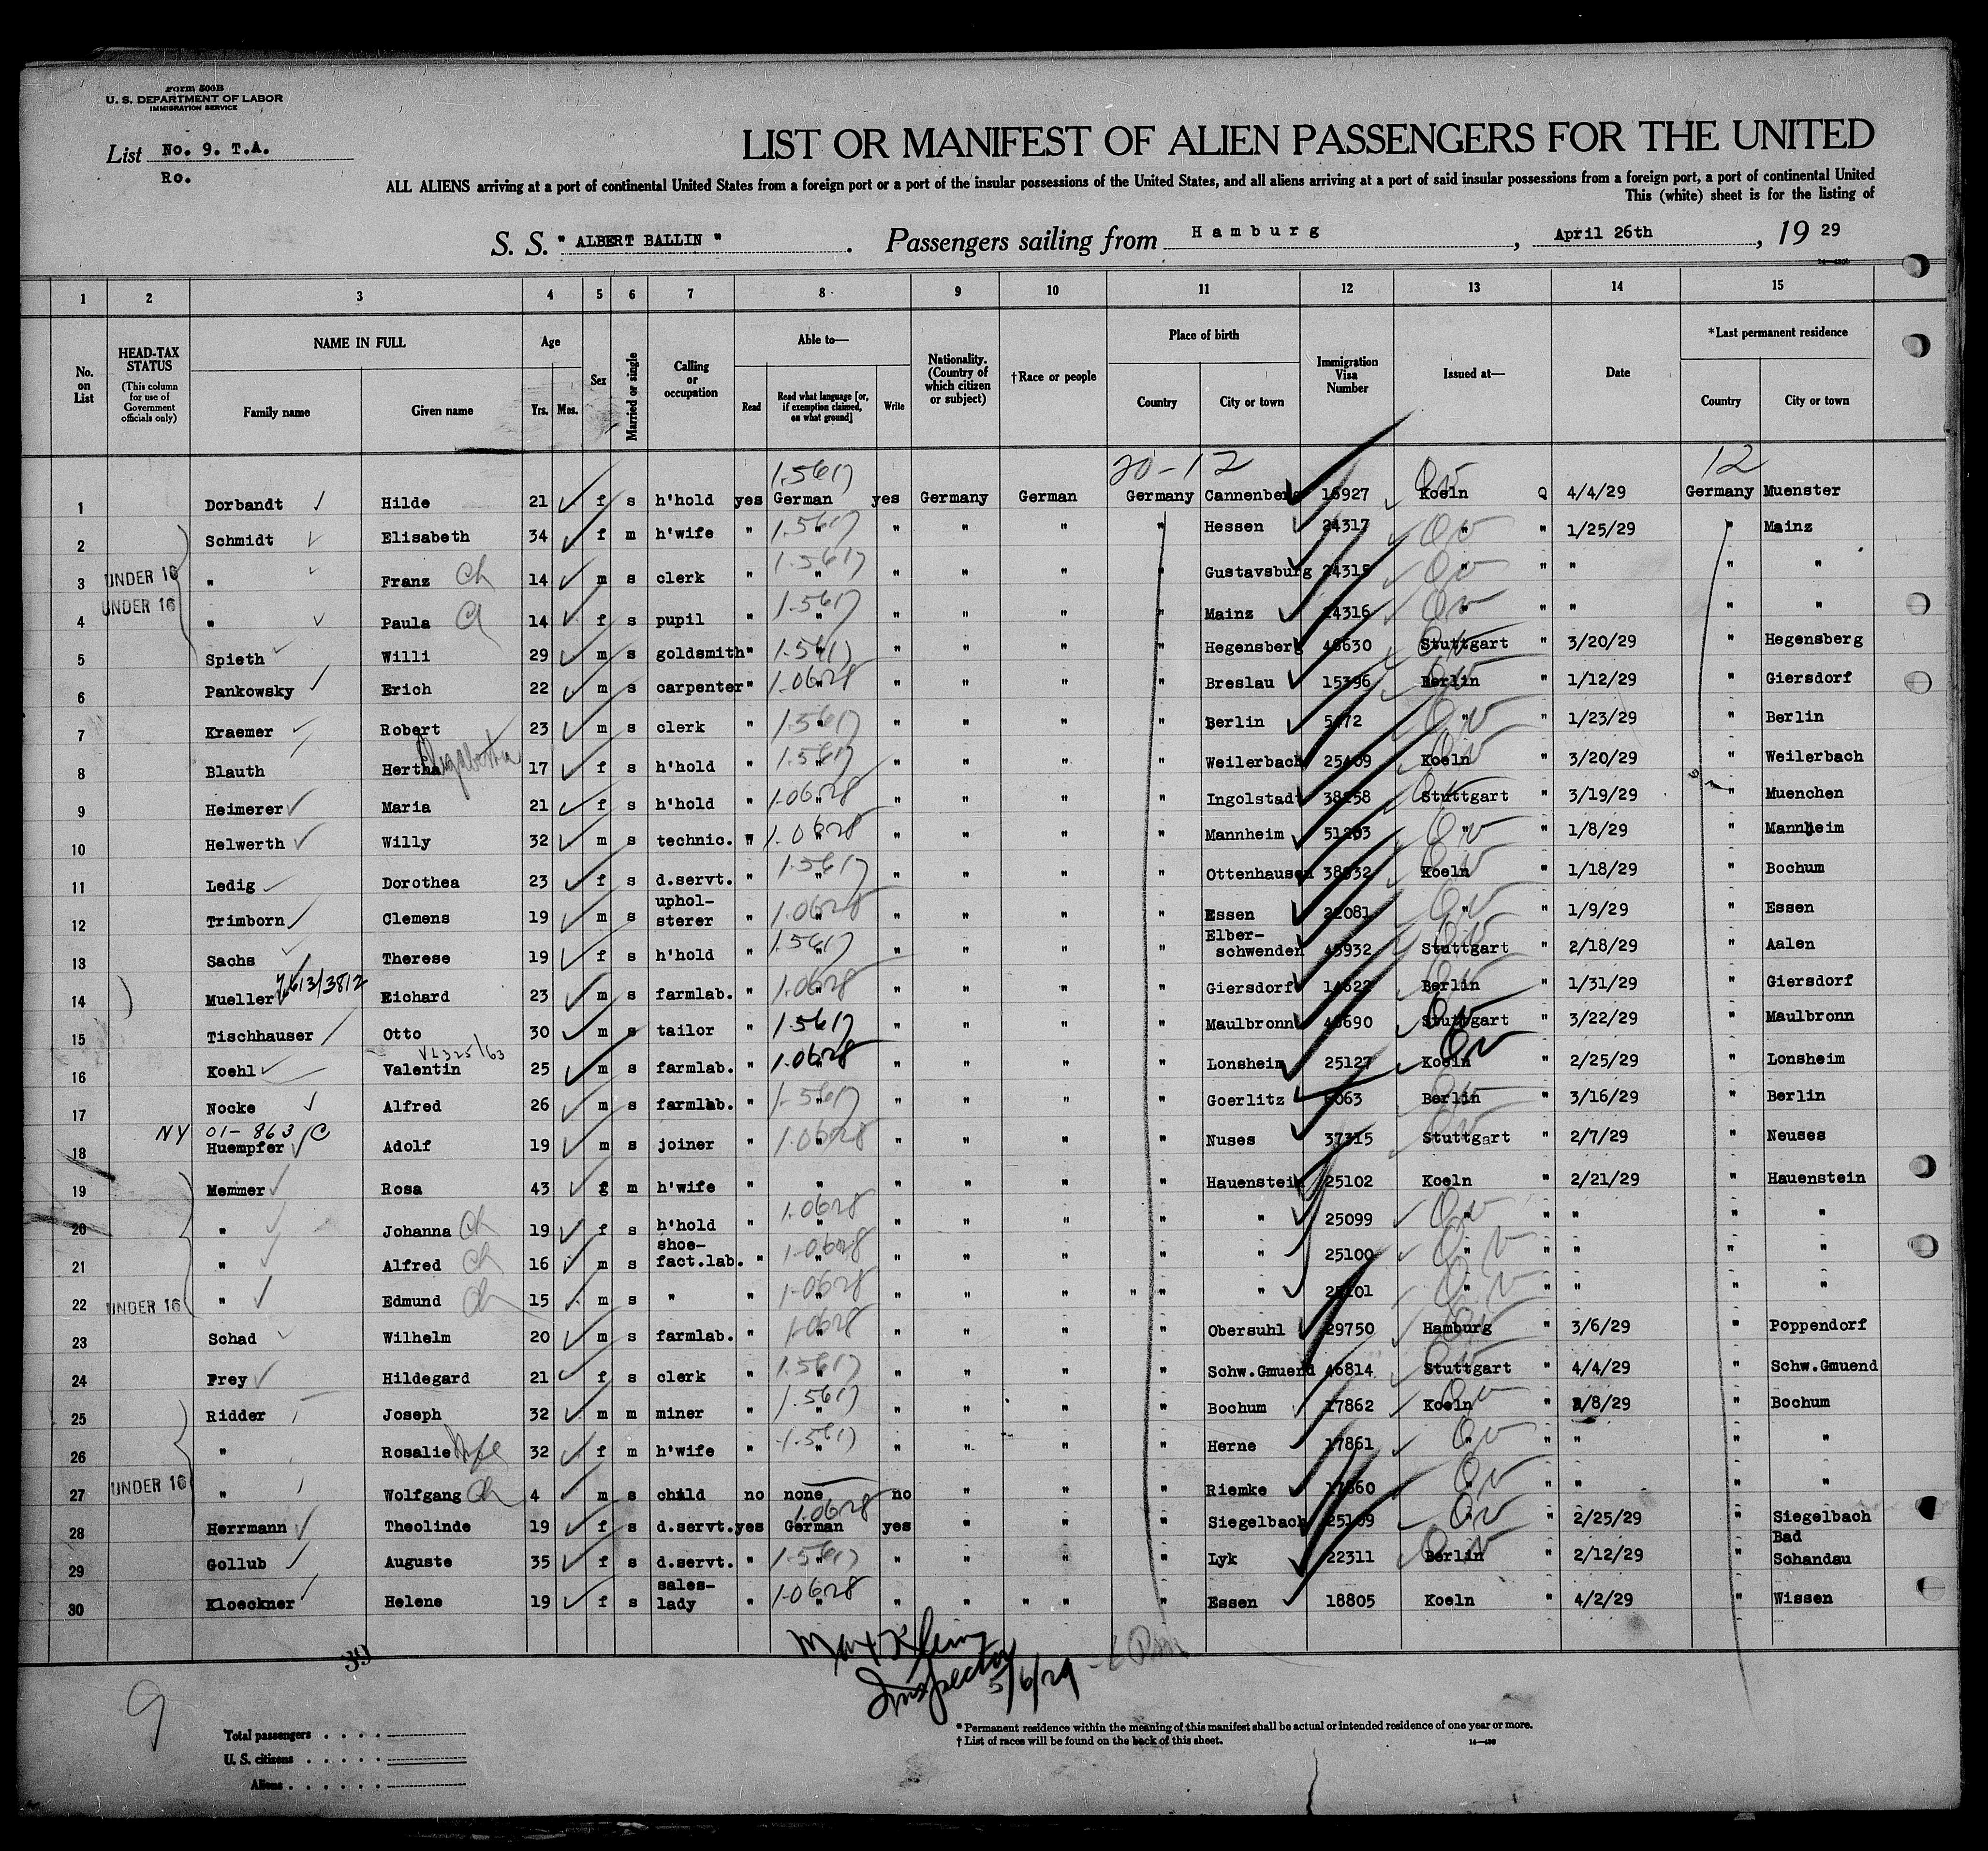 Form 500B
U. S. DEPARTMENT OF LABOR
IMMIGRATION SERVICE
List No. 9. T.A.
Ro.
LIST OR MANIFEST OF ALIEN PASSENGERS FOR THE UNITED
ALL ALIENS arriving at a port of continental United States from a foreign port or a port of the insular possessions of the United States, and all aliens arriving at a port of said insular possessions from a foreign port, a port of continental United
This (white) sheet is for the listing of
S. S. " ALBERT BALLIN ". Passengers sailing from Hamburg, April 26th, 19 29
1 2 3 4 5 6 7 8 9 10 11 12 13 14 15
No. on List
HEAD-TAX STATUS (This column for use of Government officials only)
NAME IN FULL Family name Given name
Age Yrs. Mos.
Sex
Married or single
Calling or occupation
Able to— Read Read what language [or, if exemption claimed, on what ground] Write
Nationality. (Country of which citizen or subject)
†Race or people
Place of birth Country City or town
Immigration Visa Number
Issued at—
Date
*Last permanent residence Country City or town
1.5617 20-12 12
1 Dorbandt Hilde 21 f s h'hold yes German yes Germany German Germany Cannenberg 16927 Koeln Q 4/4/29 Germany Muenster
2 Schmidt Elisabeth 34 f m h'wife " 1.5617 " " " " " Hessen 24317 " " 1/25/29 " Mainz
3 UNDER 16 " Franz Ch 14 m s clerk " 1.5617 " " " " " Gustavsburg 24315 " " " " "
4 UNDER 16 " Paula 14 f s pupil " 1.5617 " " " " " Mainz 24316 " " " " "
5 Spieth Willi 29 m s goldsmith " 1.5617 " " " " " Hegensberg 48630 Stuttgart " 3/20/29 " Hegensberg
6 Pankowsky Erich 22 m s carpenter " 1.0628 " " " " " Breslau 15396 Berlin " 1/12/29 " Giersdorf
7 Kraemer Robert 23 m s clerk " 1.5617 " " " " " Berlin " " 1/23/29 " Berlin
8 Blauth Hertha 17 f s h'hold " 1.5617 " " " " " Weilerbach Koeln " 3/20/29 " Weilerbach
9 Heimerer Maria 21 f s h'hold " 1.0628 " " " " " Ingolstadt Stuttgart " 3/19/29 " Muenchen
10 Helwerth Willy 32 m s technic. " 1.0628 " " " " " Mannheim " " 1/8/29 " Mannheim
11 Ledig Dorothea 23 f s d.servt. " 1.5617 " " " " " Ottenhausen Koeln " 1/18/29 " Bochum
12 Trimborn Clemens 19 m s upholsterer " 1.0628 " " " " " Essen 22081 " " 1/9/29 " Essen
13 Sachs Therese 19 f s h'hold " 1.5617 " " " " " Elber-schwenden 45932 Stuttgart " 2/18/29 " Aalen
14 Mueller Eichard 23 m s farmlab. " 1.0628 " " " " " Giersdorf Berlin " 1/31/29 " Giersdorf
15 Tischhauser Otto 30 m s tailor " 1.5617 " " " " " Maulbronn Stuttgart " 3/22/29 " Maulbronn
16 Koehl Valentin 25 m s farmlab. " 1.0628 " " " " " Lonsheim 25127 Koeln " 2/25/29 " Lonsheim
17 Nocke Alfred 26 m s farmlab. " 1-5617 " " " " " Goerlitz Berlin " 3/16/29 " Berlin
NY 01-863
18 Huempfer Adolf 19 m s joiner " 1.0628 " " " " " Nuses 37315 Stuttgart " 2/7/29 " Neuses
19 Memmer Rosa 43 f m h'wife " " " " " " Hauenstein 25102 Koeln " 2/21/29 " Hauenstein
20 " Johanna Ch 19 f s h'hold " 1.0628 " " " " " " 25099 " " " " "
21 " Alfred Ch 16 m s shoe-fact.lab. " 1-0628 " " " " " " 25100 " " " " "
22 UNDER 16 " Edmund Ch 15 m s " " 1-0628 " " " " " " 25101 " " " " "
23 Schad Wilhelm 20 m s farmlab. " 1-0628 " " " " " Obersuhl 29750 Hamburg " 3/6/29 " Poppendorf
24 Frey Hildegard 21 f s clerk " 1.5617 " " " " " Schw.Gmuend 46814 Stuttgart " 4/4/29 " Schw.Gmuend
25 Ridder Joseph 32 m m miner " 1.5617 " " " " " Bochum 17862 Koeln " 2/8/29 " Bochum
26 " Rosalie Wfe 32 f m h'wife " 1.5617 " " " " " Herne 17861 " " " " "
27 UNDER 16 " Wolfgang Ch 4 m s child no none no " " " Riemke 17860 " " " " "
28 Herrmann Theolinde 19 f s d.servt. yes 1.0628 German yes " " " Siegelbach 25109 " " 2/25/29 " Siegelbach
29 Gollub Auguste 35 f s d.servt. " 1-5617 " " " " " Lyk 22311 Berlin " 2/12/29 " Bad Schandau
30 Kloeckner Helene 19 f s sales-lady " 1-0628 " " " " " Essen 18805 Koeln " 4/2/29 " Wissen
39
Inspector 5/6/29
9
Total passengers
U. S. citizens
Aliens
* Permanent residence within the meaning of this manifest shall be actual or intended residence of one year or more.
† List of races will be found on the back of this sheet.